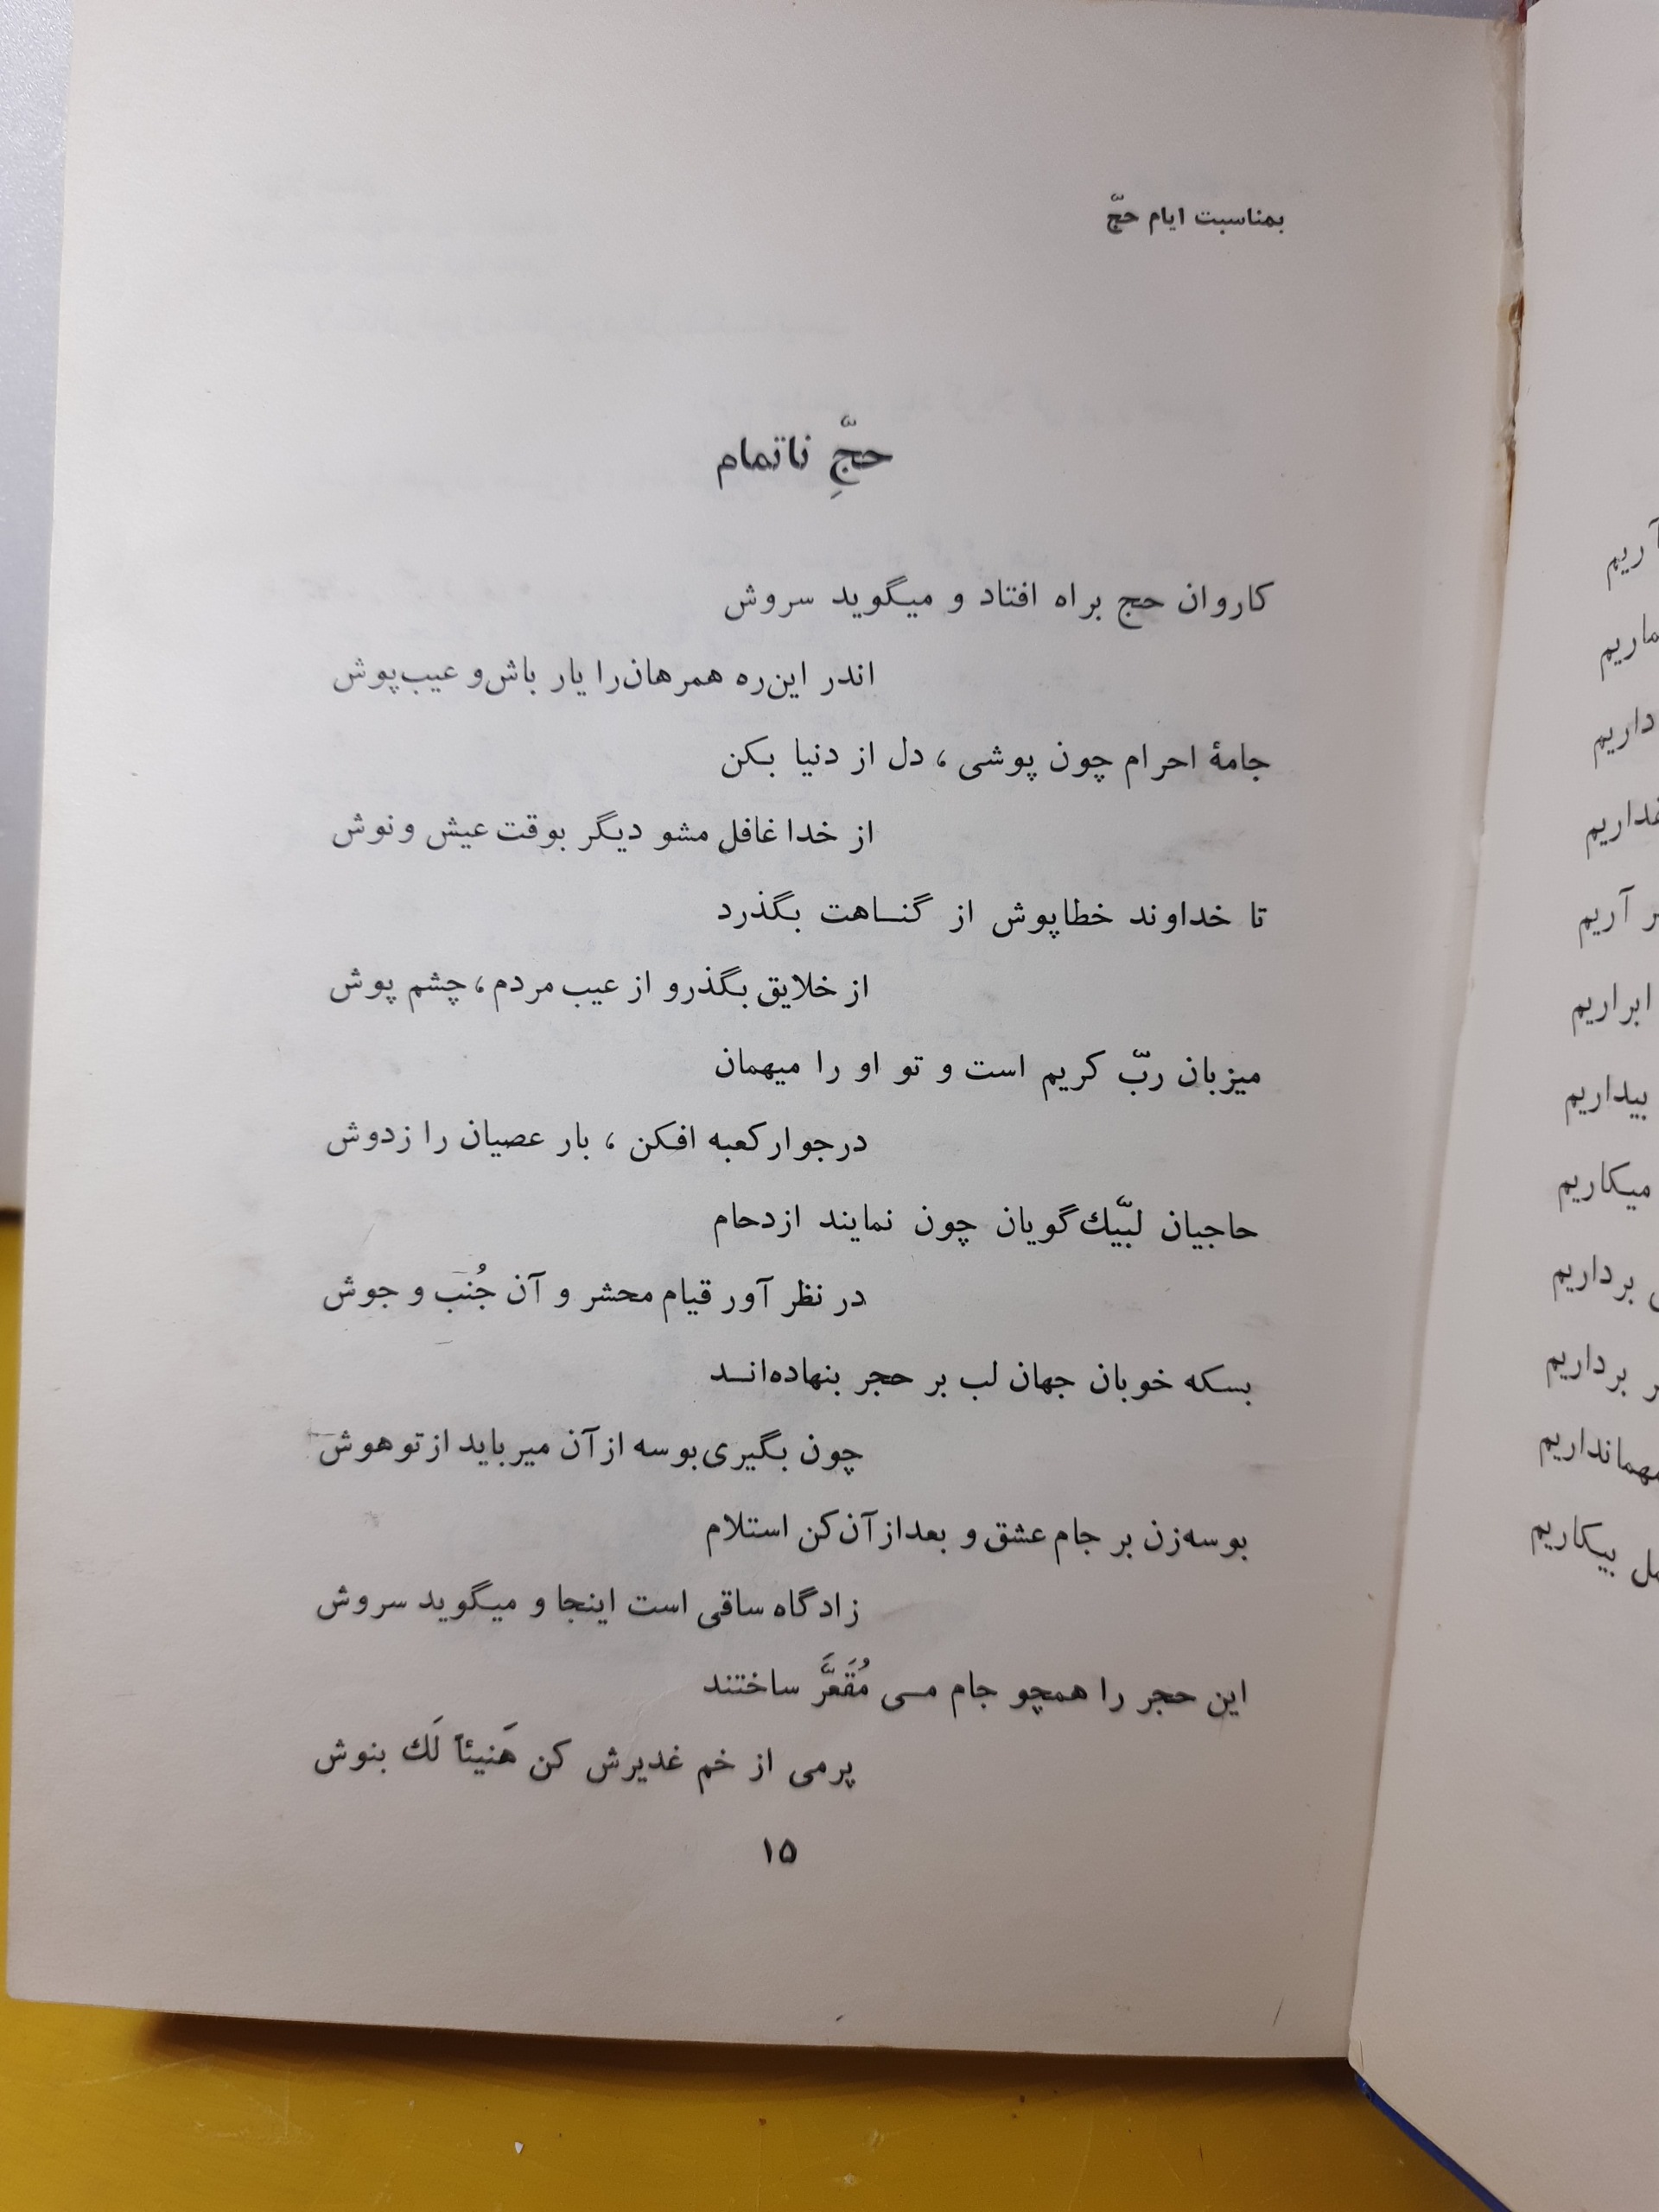 بمناسبت ایام حجّ
حجِّ ناتمام
کاروان حج براه افتاد و میگوید سروش
اندر این‌ره همرهان‌را یار باش‌و عیب‌پوش
جامهٔ احرام چون پوشی ، دل از دنیا بکن
از خدا غافل مشو دیگر بوقت عیش و نوش
تا خداوند خطاپوش از گنـاهت بگذرد
از خلایق بگذرو از عیب مردم ، چشم پوش
میزبان ربّ کریم است و تو او را میهمان
درجوارکعبه افکن ، بار عصیان را زدوش
حاجیان لبّیك‌گویان چون نمایند ازدحام
در نظر آور قیام محشر و آن جُنب و جوش
بسکه خوبان جهان لب بر حجر بنهاده‌انـد
چون بگیری‌بوسه ازآن میرباید ازتوهوش
بوسه‌زن بر جام عشق و بعدازآن‌کن استلام
زادگاه ساقی است اینجا و میگوید سروش
این حجر را همچو جام مـی مُقَعَّر ساختند
پرمی از خم غدیرش کن هَنیئاً لَك بنوش
۱۵
آریم
داریم
ر آریم
ابراریم
بیداریم
میکاریم
برداریم
ر برداریم
بیکاریم